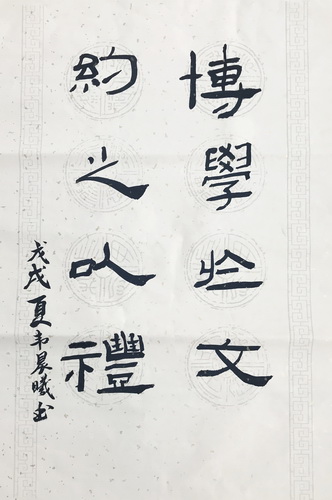 博學於文
約之以禮
戊戌夏韦晨曦书